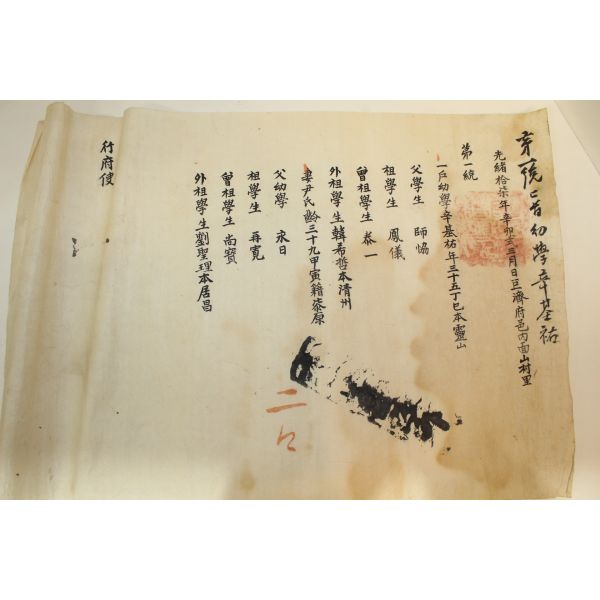 光緒拾柒年辛卯 三月日巨濟府邑內面山村里
第一統
一戶幼學辛基祐年三十五丁巳本靈山
父學生 師恊
祖學生 鳳儀
曾祖學生 泰一
外祖學生韓希哲本清州
妻尹氏齡三十九甲寅籍漆原
父幼學 永日
祖學生 再寬
曾祖學生 尚寶
外祖學生劉聖理本居昌
行府使
二口